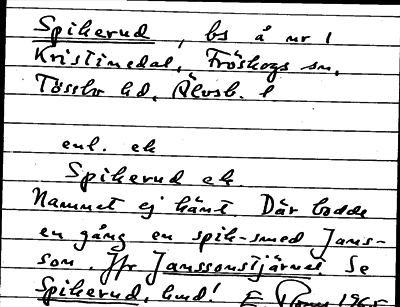 Spikerud, bs å nr 1
Kristinedal, Fröskogs sn,
Tössbo hd, Älvsb. l
enl. ek
Spikerud ek.
Namnet ej känt. Där bodde
en gång en spik-smed Jans-
son. Jfr Janssonstjärnet. Se
Spikerud, hmd! E 1965